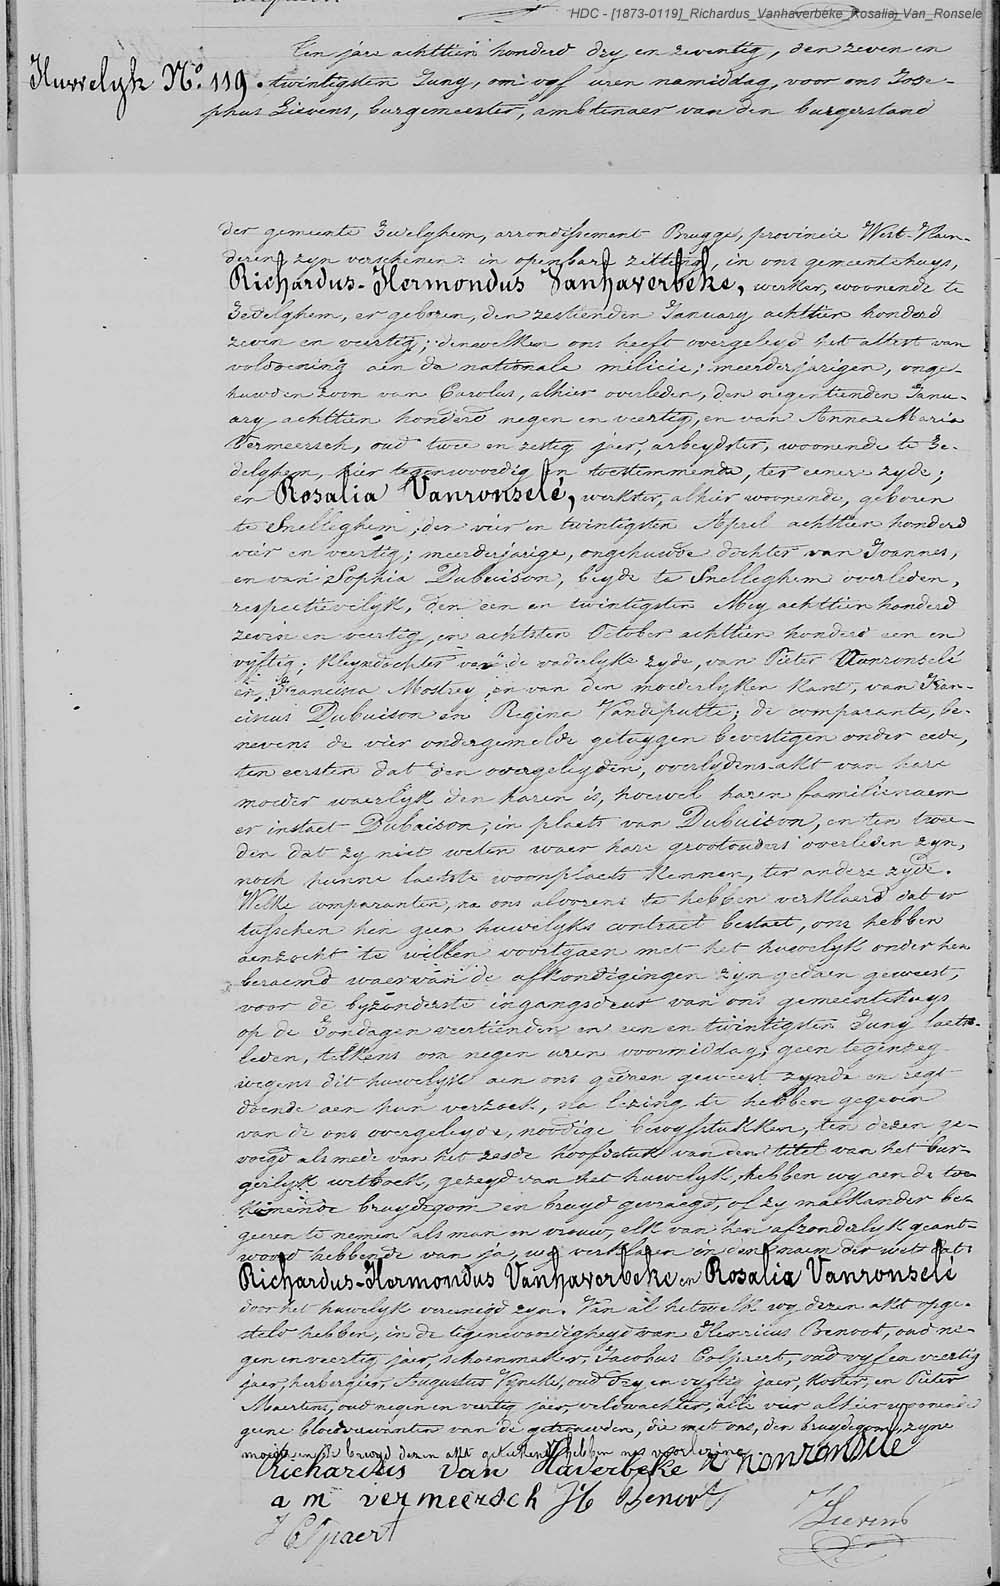 HDC - [1873-0119]_Richardus_Vanhaverbeke_Rosalia_Van_Ronsele
Huwelyk No. 119.
Ten jare achttien honderd dry en zeventig, den zeven en
twintigsten Juny, om vyf uren namiddag, voor ons Jose-
phus Lievens, burgemeester, ambtenaer van den burgerstand
der gemeente Zedelghem, arrondissement Brugge, provincie West-Vlaen-
deren zyn verschenen in openbare zitting, in ons gemeentehuys,
Richardus-Hermondus Vanhaverbeke, werker, woonende te
Zedelghem, er geboren, den zestienden January achttien honderd
zeven en veertig; denwelken ons heeft overgelegd het attest van
voldoening aen de nationale milicie; meerderjarigen, onge-
huwden zoon van Carolus, alhier overleden, den negentienden Janu-
ary achttien honderd negen en veertig, en van Anna Maria
Vermeersch, oud twee en zestig jaer, arbeydster, woonende te Ze-
delghem, hier tegenwoordig en toestemmende, ter eenere zyde;
en Rosalia Vanronselé, werkster, alhier woonende, geboren
te Snelleghem, den vier en twintigsten April achttien honderd
vier en veertig; meerderjarige, ongehuwde dochter van Joannes,
en van Sophia Dubuison, beyde te Snelleghem overleden,
respectievelyk, den een en twintigsten Mey achttien honderd
zeven en veertig, en achtsten October achttien honderd een en
vyftig; kleyndochter van de vaderlyke zyde, van Pieter Vanronselé
en Francisca Mostrey, en van den moederlyken kant, van Fran-
ciscus Dubuison en Regina Vandeputte; de comparante, be-
nevens de vier ondergemelde getuygen bevestigen onder eede,
ten eersten dat den overgelegden, overlydens akt van hare
moeder waerlyk den haren is, hoewel haren familienaem
er instaet Dubaison, in plaets van Dubuison, en ten twee-
den dat zy niet weten waer hare grootouders overleden zyn,
noch hunne laetste woonplaets kennen, ter andere zyde.
Welke comparanten, na ons alvorens te hebben verklaerd dat er
tusschen hen geen huwelyks contract bestaet, ons hebben
aenzocht te willen voortgaen met het huwelyk onder hen
beraemd waervan de afkondigingen zyn gedaen geweest,
voor de byzonderste ingangsdeur van ons gemeentehuys
op de Zondagen veertienden en een en twintigsten Juny laetst-
leden, telkens om negen uren voormiddag; geen tegenzeg
wegens dit huwelyk aen ons gedaen geweest zynde en regt
doende aen hun verzoek, na lezing te hebben gegeven
van de ons overgelegde, noodige bewysstukken, ten dezen ge-
voegd alsmede van het zesde hoofdstuk van den titel van het bur-
gerlyk wetboek, gezegd van het huwelyk, hebben wy aen de toe-
komende bruydegom en bruyd gevraegd, of zy malkander be-
geeren te nemen als man en vrouw, elk van hen afzonderlyk geant-
woord hebbende van ja, wy verklaren in den naem der wet dat
Richardus-Hermondus Vanhaverbeke en Rosalia Vanronselé
door het huwelyk vereenigd zyn. Van al hetwelk wy dezen akt opge-
steld hebben, in de tegenwoordigheyd van Henricus Benoot, oud ne-
gen en veertig jaer, schoenmaker, Jacobus Colpaert, oud vyf en veertig
jaer, herbergier, Augustus Vyncke, oud dry en vyftig jaer, koster, en Pieter
Maertens, oud negen en veertig jaer, veldwachter, alle vier alhier woonende
geene bloedverwanten van de getrouwden, die met ons, den bruydegom, zyne
moeder en de bruyd dezen akt geteekend hebben na voorlezing.
Richardus van Haverbeke R vanronsele
a m vermeersch H Benoot
J Colpaert
J Lievens